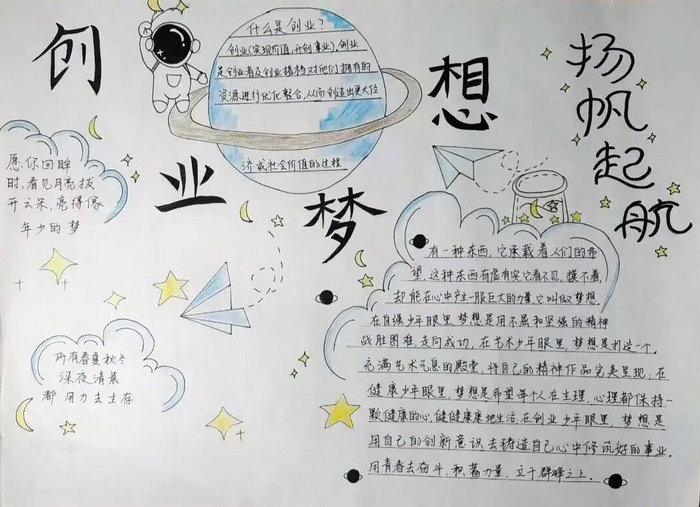 创业梦想
扬帆起航
什么是创业?
创业(实现价值,开创事业),创业
是创业者及创业搭档对他们拥有的
资源进行优化整合,从而创造出更大经
济或社会价值的过程
愿你回眸
时,看见月亮拨
开云朵,亮得像
年少的梦
所有春夏秋冬
深夜清晨
都用力去生存
有一种东西,它承载着人们的希
望,这种东西有虚有实,它看不见,摸不着,
却能在心中产生一股巨大的力量,它叫做梦想,
在自强少年眼里,梦想是用不屈和坚强的精神
战胜困难,走向成功,在艺术少年眼里,梦想是打造一个
充满艺术气息的殿堂,将自己的精神作品完美呈现;在
健康少年眼里,梦想是希望每个人在生理,心理都保持一
颗健康的心,健健康康地生活,在创业少年眼里,梦想是
用自己的创新意识去铸造自己心中修筑好的事业.
用青春去奋斗,积蓄力量,立于群峰之上.